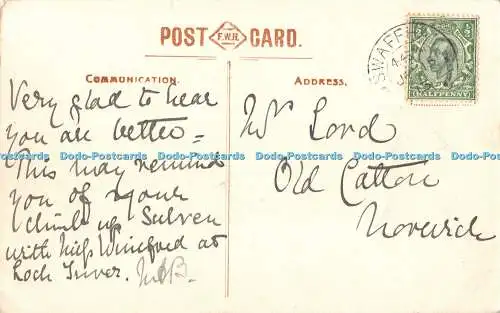 POST F.W.H. CARD.
SWAFF
COMMUNICATION.
ADDRESS.
HALFPENNY
Very glad to hear
you are better =
This may remind
you of your
climb up Sulven
with Miss Winifred at
Loch Inver. MB.
Mr Lord
Old Catton
Norwich
Dodo-Postcards Dodo-Postcards Dodo-Postcards Dodo-Postcards Dodo-Postcards